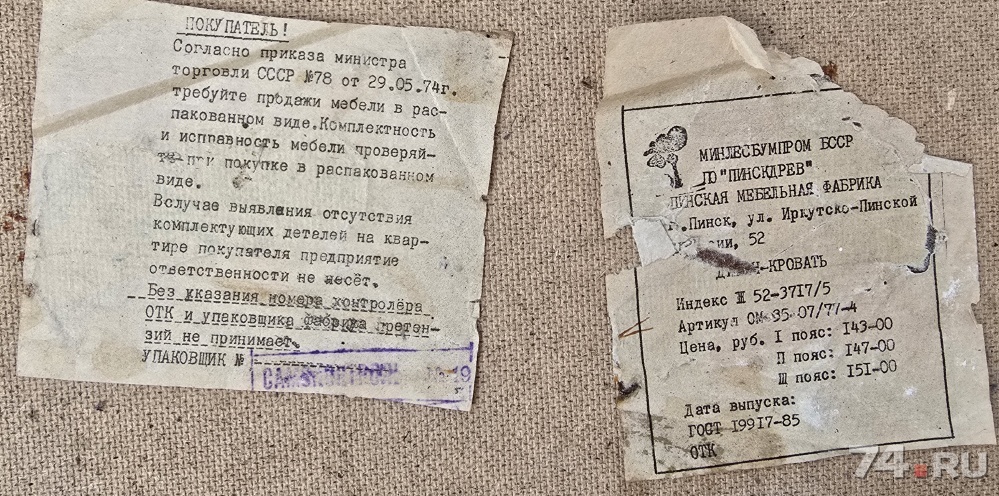 ПОКУПАТЕЛЬ!
Согласно приказа министра
торговли СССР №78 от 29.05.74г.
требуйте продажи мебели в рас-
пакованном виде.Комплектность
и исправность мебели проверяй-
те при покупке в распакованном
виде.
Вслучае выявления отсутствия
комплектующих деталей на квар-
тире покупателя предприятие
ответственности не несёт.
Без указания номера контролёра
ОТК и упаковщика фабрика претен-
зий не принимает.
УПАКОВЩИК №
19
МИНЛЕСБУМПРОМ БССР
ПО "ПИНСКДРЕВ"
ПИНСКАЯ МЕБЕЛЬНАЯ ФАБРИКА
г.Пинск, ул. Иркутско-Пинской
ии, 52
ДИВАН-КРОВАТЬ
Индекс Ш 52-3717/5
Артикул ОМ-35-07/77-4
Цена, руб. I пояс: 143-00
П пояс: 147-00
Ш пояс: 151-00
Дата выпуска:
ГОСТ 19917-85
ОТК
74.RU